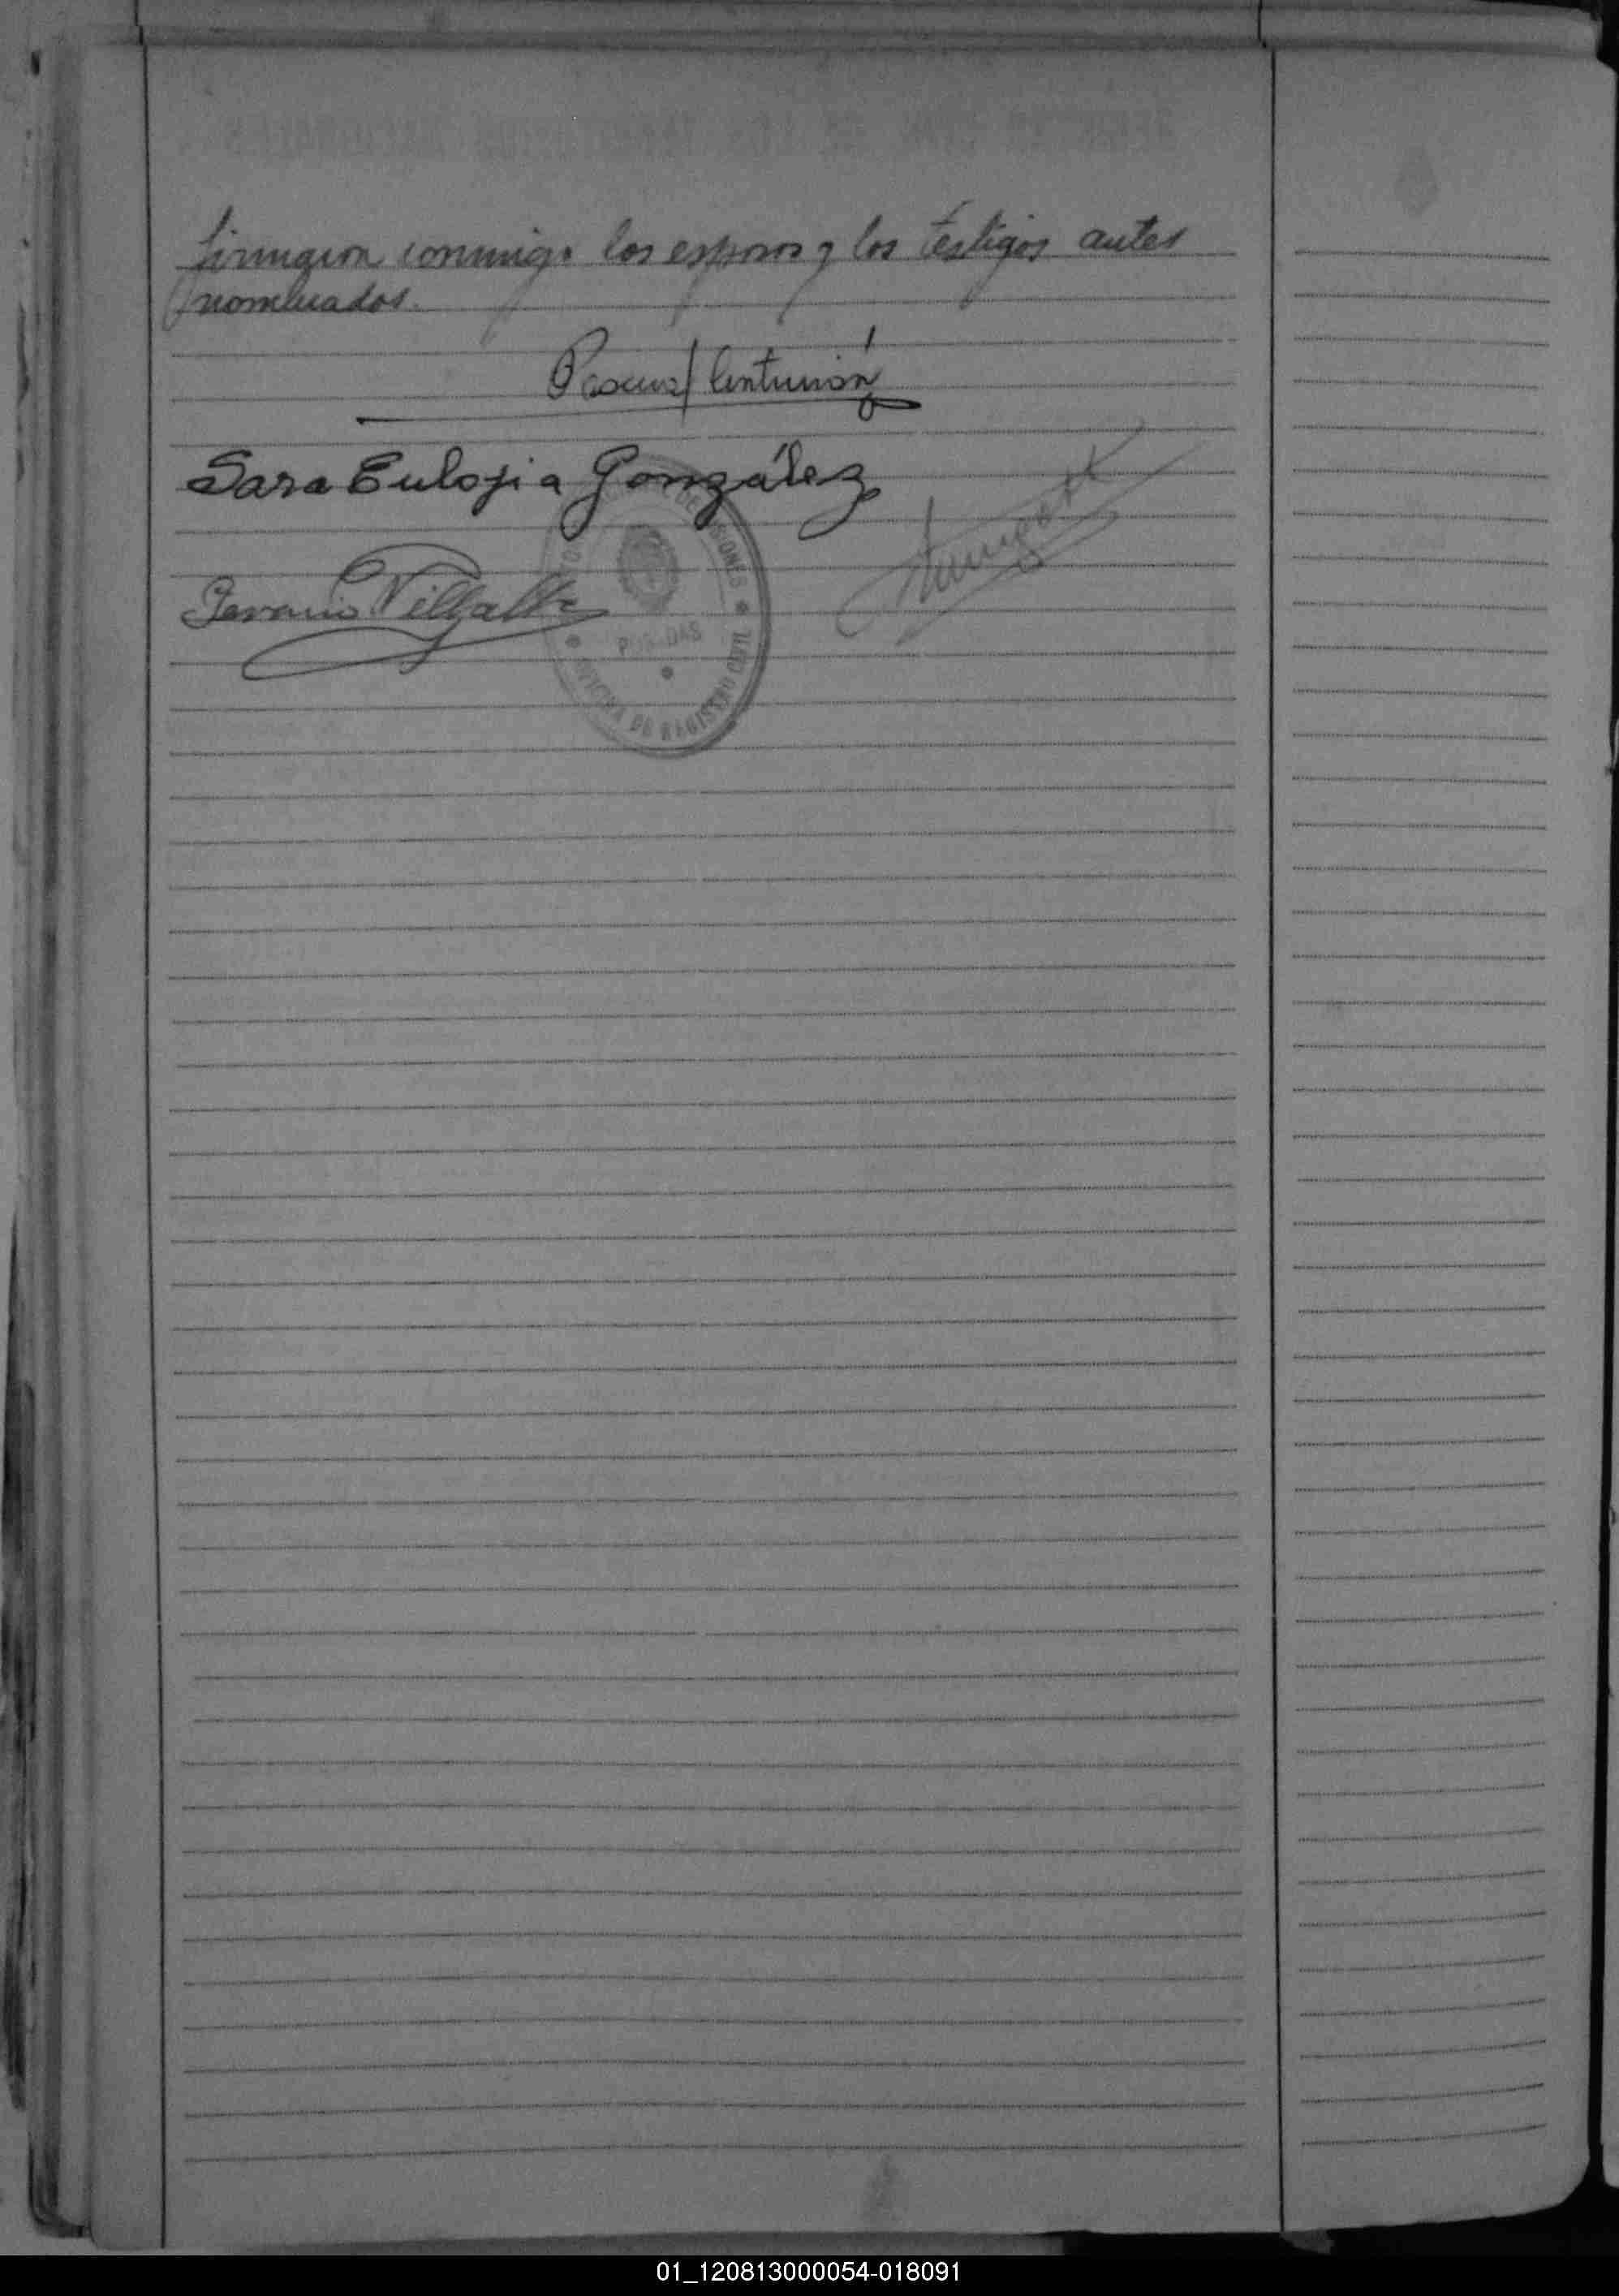 firmaron conmigo los esposos y los testigos antes
nombrados.
Pascual Centurión
Sara Eulojia González
Villalba
DE MISIONES
POSADAS
OFICINA DE REGISTRO CIVIL
01_120813000054-018091